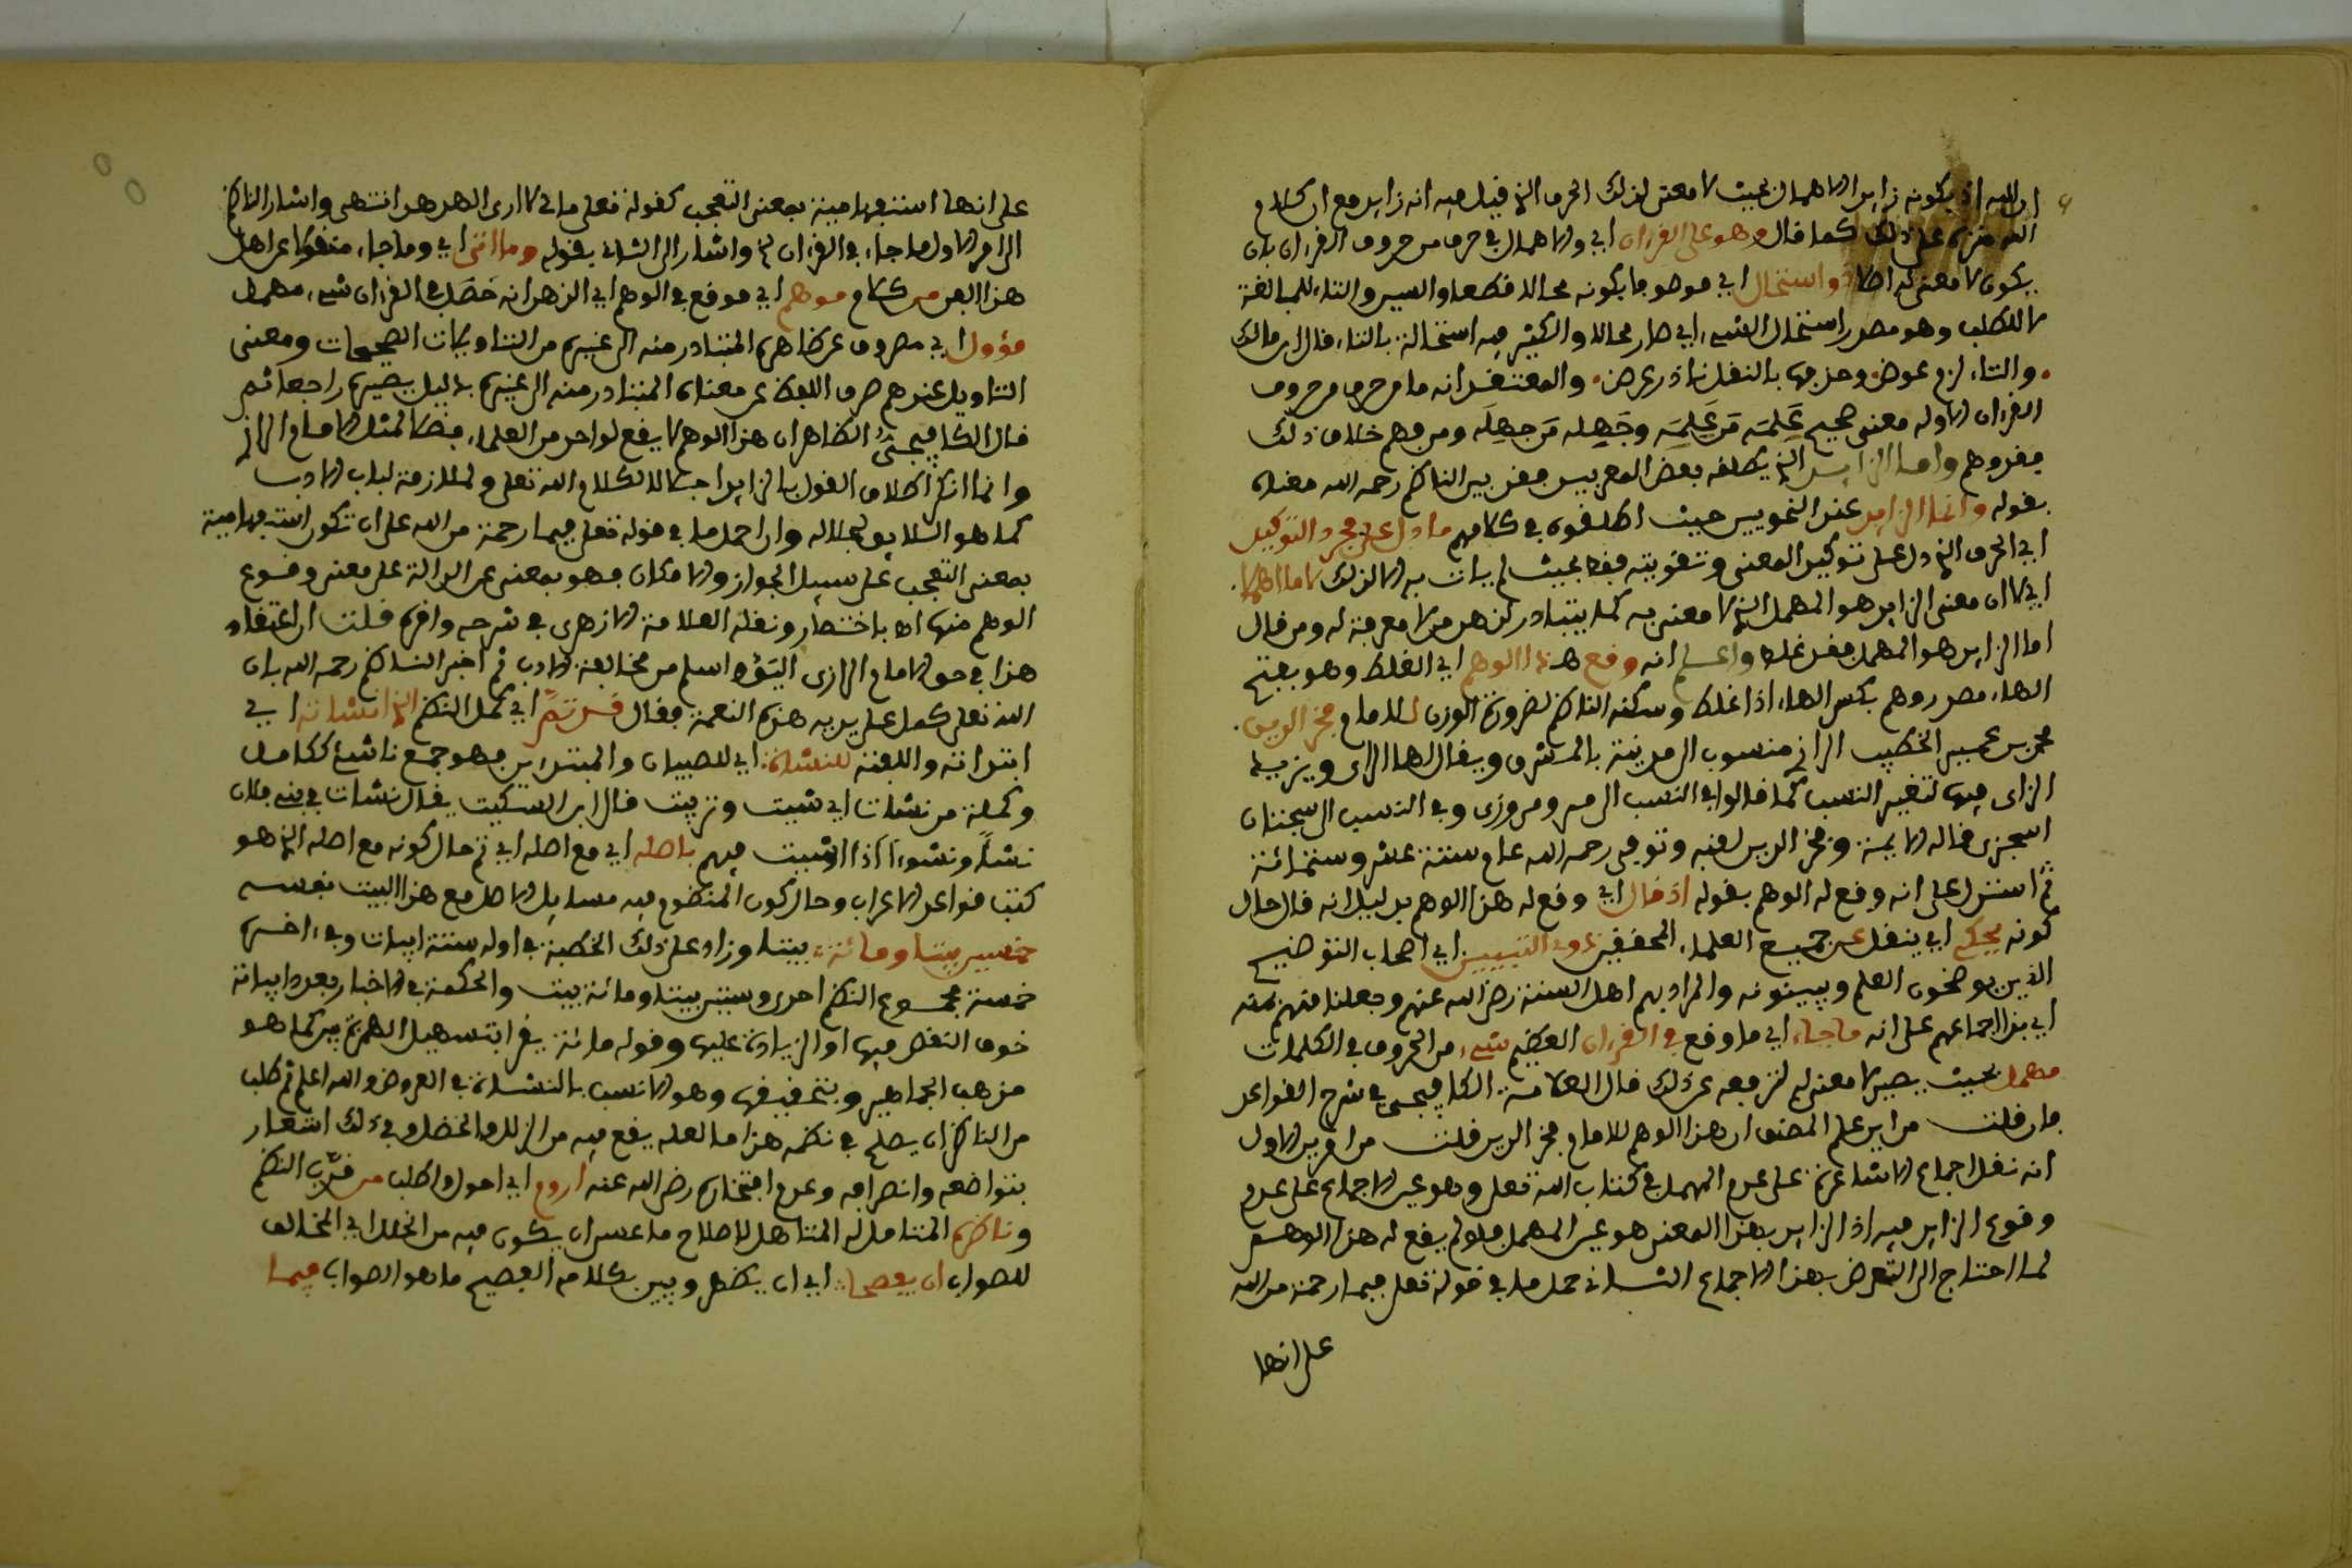 ان الله اذ يكونه زايد الاهمال بحيث لا معنى لذلك الحرف الذي قيل فيه انه زايد مع ان كلام
الله منزه على ذلك كما قال وهو على القرءان اي والاهمال في حرف من حروف القرءان بان
يكون لا معنى له اصلا ذو استحال اي هو هو ما يكونه محالا قطعا والسين والتاء للمبالغة
لا للطلب وهو مصدر استحال الشيء اي صار محالا والكثير فيه استحالة بالتاء قال ابن مالك
والتاء الزم عوض وحذفها بالنقل نادر عرض والمعتقد انه ما من حرف من حروف
القرءان الا وله معنى صحيح علمه من علمه وجهله من جهله ومن فهم خلاف ذلك
فقد وهم واما الزايد الذي يطلقه بعض المعربين فقد بين الناظم رحمه الله معناه
بقوله وانما الزايد عند النحويين حيث اطلقوه في كلامهم ما دل على مجرد التوكيد
اي الحرف الذي دل على توكيد المعنى وتقويته فقط بحيث لم يات به الا لذلك لا ما اهملا
اي لا ان معنى الزايد هو المهمل الذي لا معنى به كما يتبادر لذهن من لا معرفة له ومن قال
اما الزايد هو المهمل فقد غلط واعلم انه وقع هذا الوهم اي الغلط وهو بفتح
الهاء مصدر وهم بكسر الهاء اذا غلط وسكنه الناظم لضرورة الوزن للامام فخر الدين
محمد بن عمر الخطيب الرازي منسوب الى مدينة بالمشرق ويقال لها الري ويزيد
الزاي فيها لتغيير النسب كما قالوا في النسب الى مرو مروزي وفي النسب الى سجستان
السجزي قاله الايمة وفخر الدين لقبه وتوفي رحمه الله عام ستة عشر وستمائة
ثم استدل على انه وقع له الوهم بقوله اذ قال اي وقع له هذا الوهم بدليل انه قال حال
كونه يحكي اي ينقل عن جميع العلماء المحققين ذوي التبيين اي اصحاب التوضيح
الذين يوضحون العلم ويبينونه والمراد بهم اهل السنة رضي الله عنهم وجعلنا منهم بمنه
اي نقل اجماعهم على انه ما جاء اي ما وقع في القرءان العظيم شيء من الحروف في الكلمات
مهمل بحيث يصير لا معنى له لترفعه عن ذلك قال العلامة الكافيجي في شرح القواعد
فان قلت من اين علم المصنف ان هذا الوهم للامام فخر الدين قلت من امرين الاول
انه نقل اجماع الاشاعرة على عدم المهمل في كتاب الله تعلى وهو عين الاجماع على عدم
وقوع الزايد فيه اذ الزايد بهذا المعنى هو عين المهمل فلو لم يقع له هذا الوهم
لما احتاج الى التعرض بهذا الاجماع الثاني حمل ما في قوله تعلى فبما رحمة من الله
على انها
على انها استفهامية بمعنى التعجب كقوله تعلى مالي لا ارى الهدهد انتهى واشار الناظم
الى الاول ما جاء في القرءان الخ واشار الى الثاني بقوله وما اتى اي وما جاء منقولا عن اهل
هذا الفن من كلام موهم اي موقع في الوهم اي الذهن انه حصل في القرءان شيء مهمل
مؤول اي مصروف عن ظاهره المتبادر منه الى غيره من التاويلات الصحيحات ومعنى
التاويل عندهم صرف اللفظ عن معناه المتبادر منه الى غيره بدليل يصيره راجعا ثم
قال الكافيجي الظاهر ان هذا الوهم لا يقع لواحد من العلماء فضلا لمثل الامام الرازي
وانما انكر اطلاق القول بالزايد اجلالا لكلام الله تعلى ولملازمة لباب الادب
كما هو اللايق بجلاله وان احمل ما في قوله تعلى فبما رحمة من الله على ان تكون استفهامية
بمعنى التعجب على سبيل الجواز والامكان فهو بمعنى عن الدالة على معنى وقوع
الوهم منه اه باختصار ونقله العلامة الازهري في شرحه واقره قلت ان اعتقاد
هذا في حق الامام الرازي اليق واسلم من مخالفة الادب ثم اخبر الناظم رحمه الله بان
الله تعلى كمل على يديه هذه النعمة فقال قد تم اي كمل النظم الذي انشاته اي
ابتداته والفته للنشاة اي للصبيان والمبتدئين فهو جمع ناشئ ككامل
وكملة من نشات اي شبت وتربيت قال ابن السكيت يقال نشات في بني فلان
نشا ونشوءا اذا شبيت فيهم باصله اي مع اصله اي تم حال كونه مع اصله الذي هو
كتاب قواعد الاعراب وحال كون المنظوم فيه مسايل الاصل مع هذا البيت نفسه
خمسين بيتا ومائة بيتا وزاد على ذلك الخطبة في اوله ستة ابيات وفي اخره
خمسة مجموع النظم احدى وستين بيتا ومائة بيت والحكمة في الاخبار بعدد ابياته
خوف النقص فيها او الزيادة عليها وقوله مائة يقرا بتسهيل الهمزة بين كما هو
مذهب الجماهير وبتخفيفها وهو الانسب بالنشاة في العروض والله اعلم ثم طلب
من الناظر ان يصلح في نظمه هذا ما لعله يقع فيه من الزلل والخطل وفي ذلك اشعار
بتواضعه وانصافه وعدم افتخاره رضي الله عنه اروم اي احول واطلب من قرب النظم
وناظره المتامل له المتاهل لاصلاح ما عسى ان يكون فيه من الخلل اي المخالف
للصواب ان يفصحا اي ان يظهر ويبين بكلامه الفصيح ما هو الصواب فيما